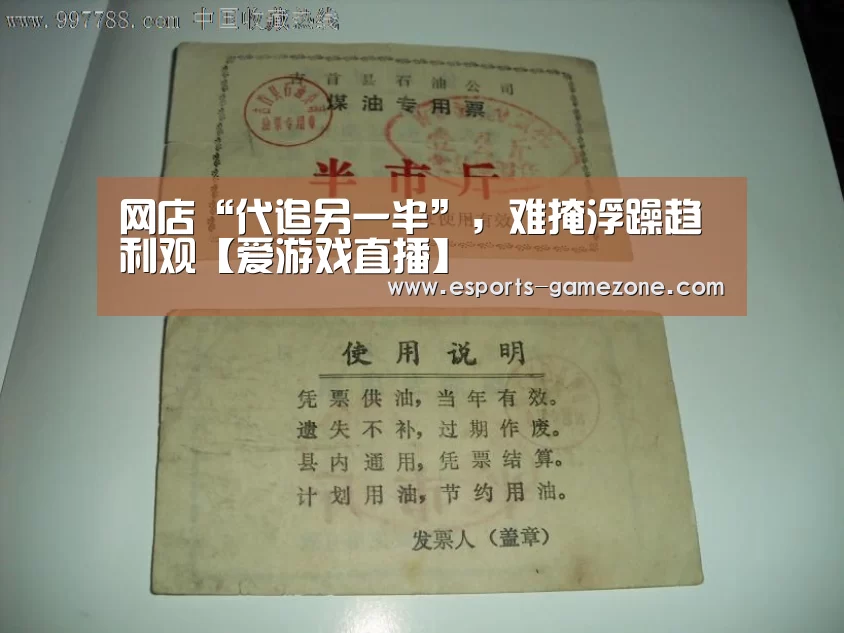 www.997788.com 中国收藏热线
吉首县石油公司
煤油专用票
半市斤
使用有效
网店“代追另一半”，难掩浮躁趋
利观【爱游戏直播】
www.esports-gamezone.com
使用说明
凭票供油，当年有效。
遗失不补，过期作废。
县内通用，凭票结算。
计划用油，节约用油。
发票人（盖章）